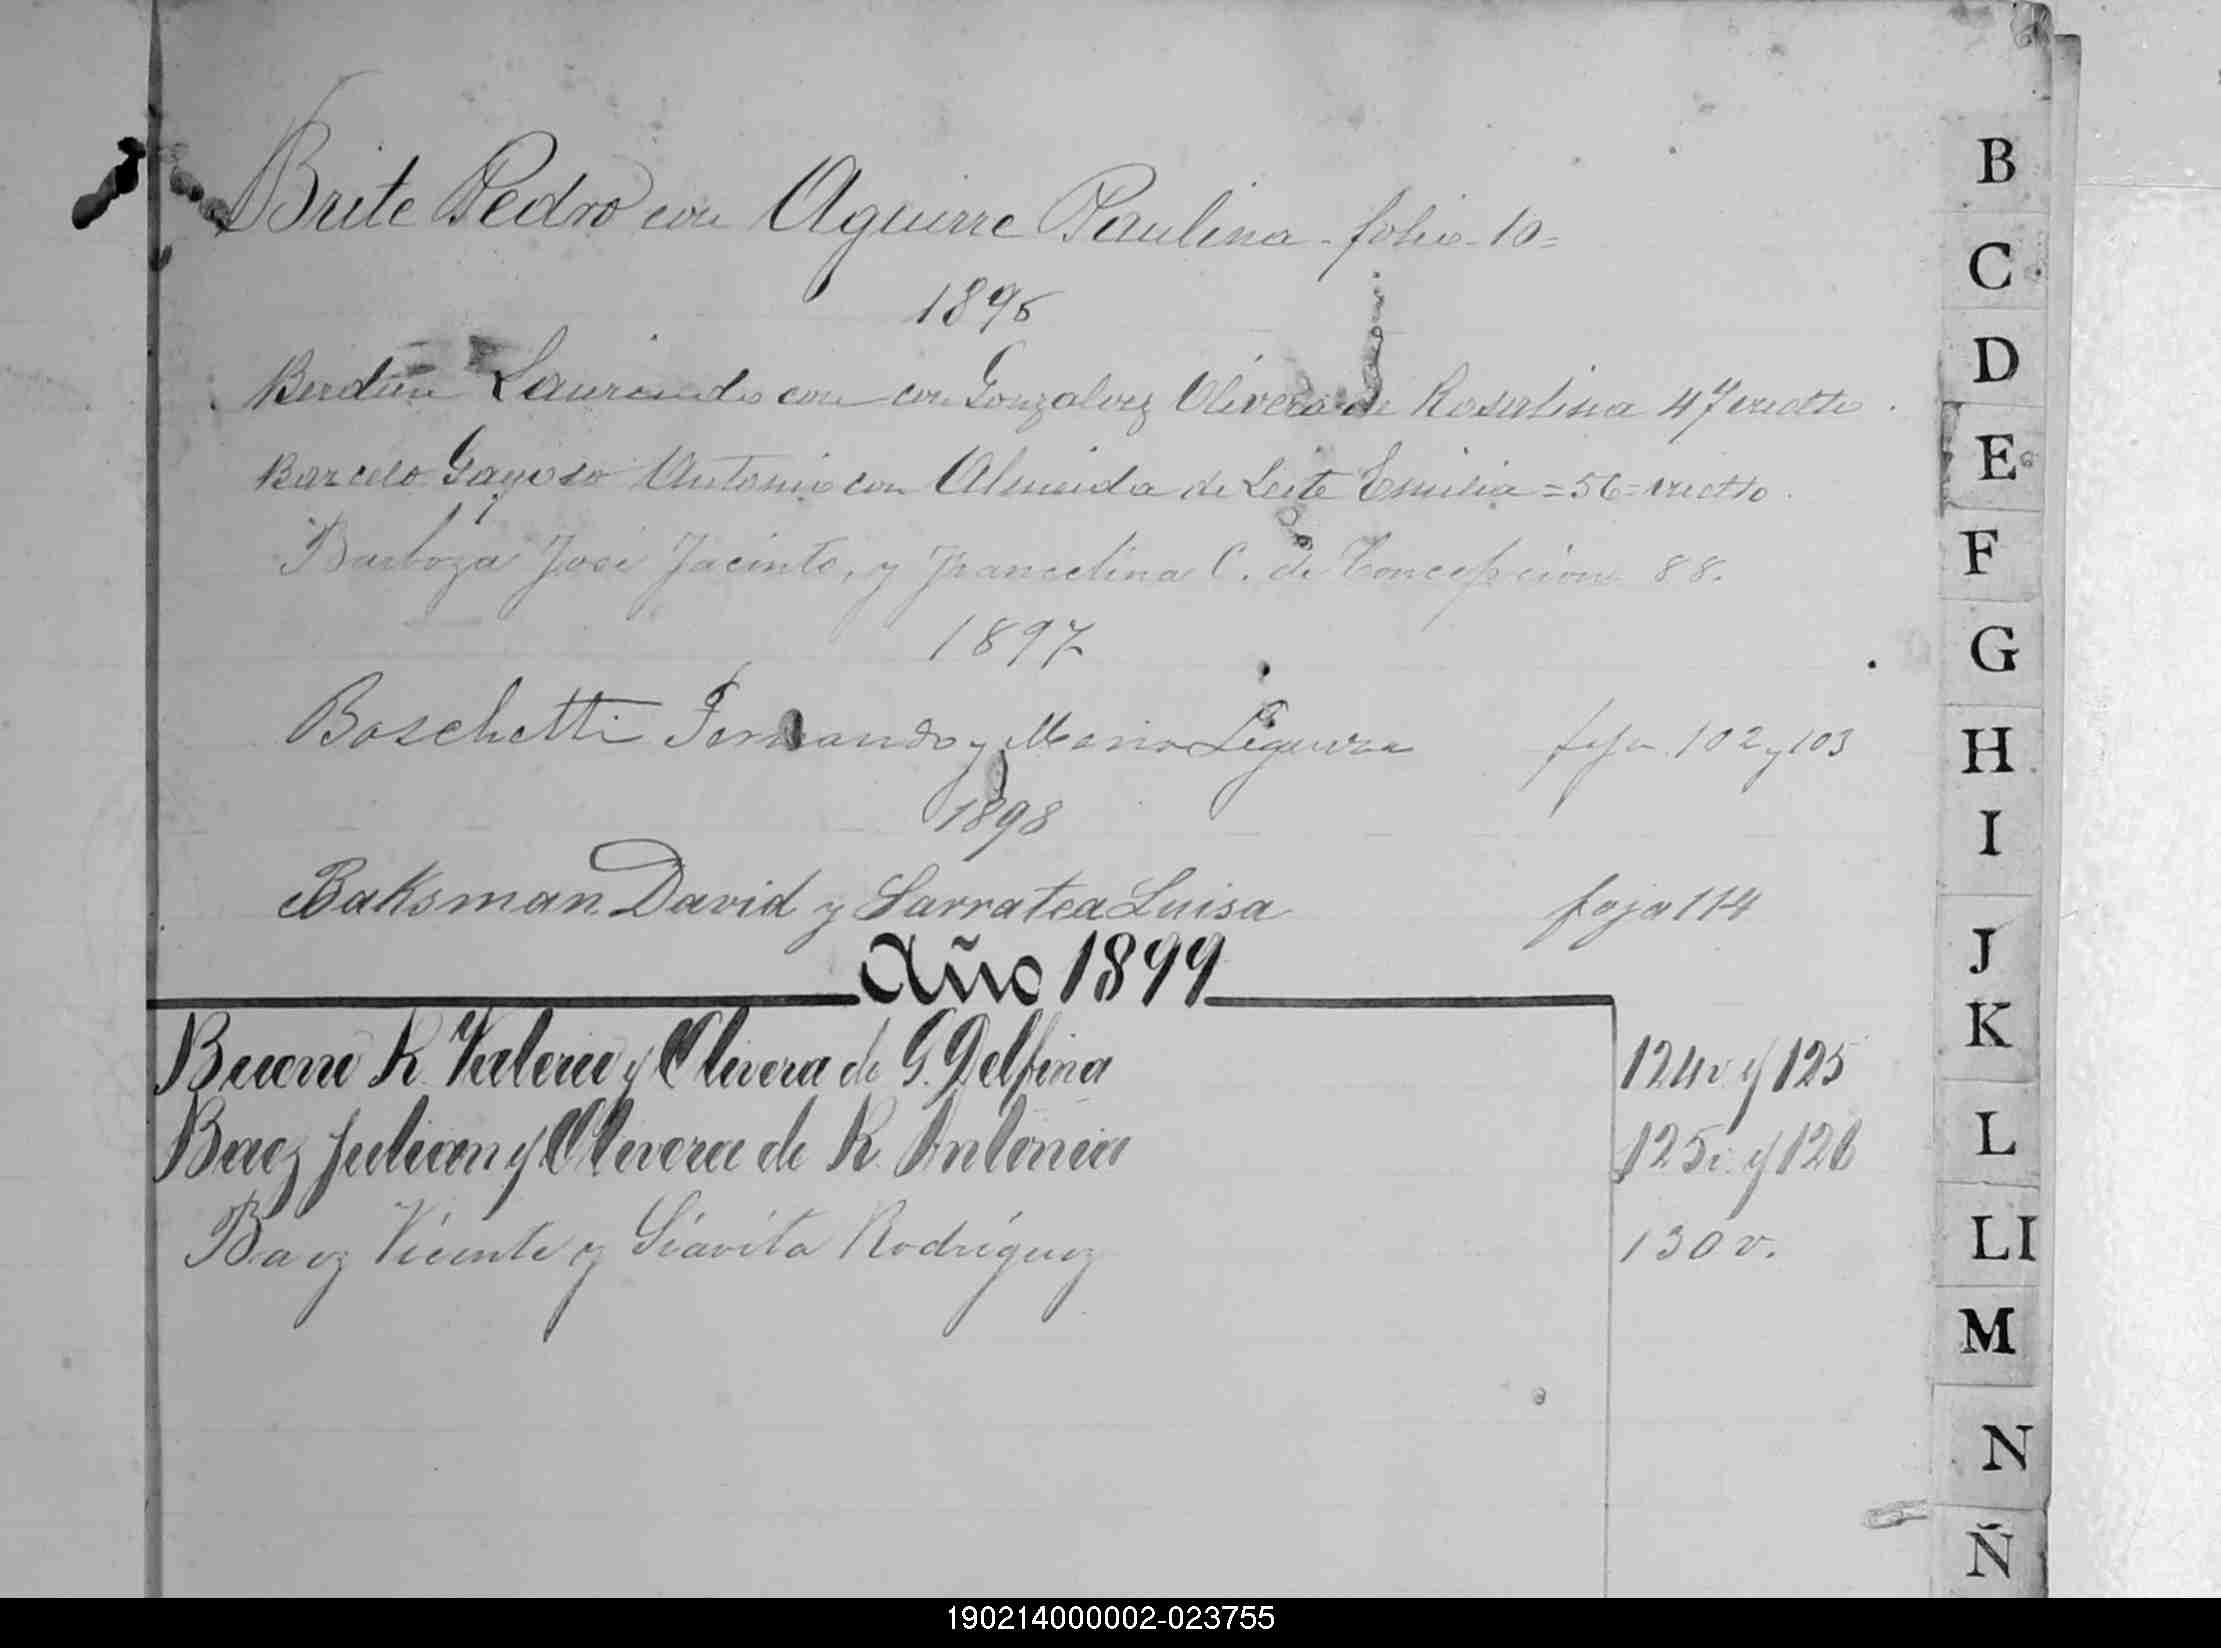 Brite Pedro con Aguirre Paulina - folio - 10 =
1896
Berdun Laurindo con con Gonzalvez Olivera de Rosalina 47 vuelto.
Barcelo Gayoso Antonio con Almeida de Leite Emilia = 56 = vuelto.
Barboza José Jacinto, y Francelina C. de Concepcion 88.
1897
Boschetti Fernando y Maria Liguera foja 102 y 103
1898
Baksman David y Sarratea Luisa foja 114
Año 1899
Bueno R. Valerio y Olivera de G. Delfina 124v y 125
Baez Julian y Olivera de R. Antonia 125v. y 126
Baez Vicente y Rodriguez 130v.
B
C
D
E
F
G
H
I
J
K
L
LI
M
N
Ñ
190214000002-023755